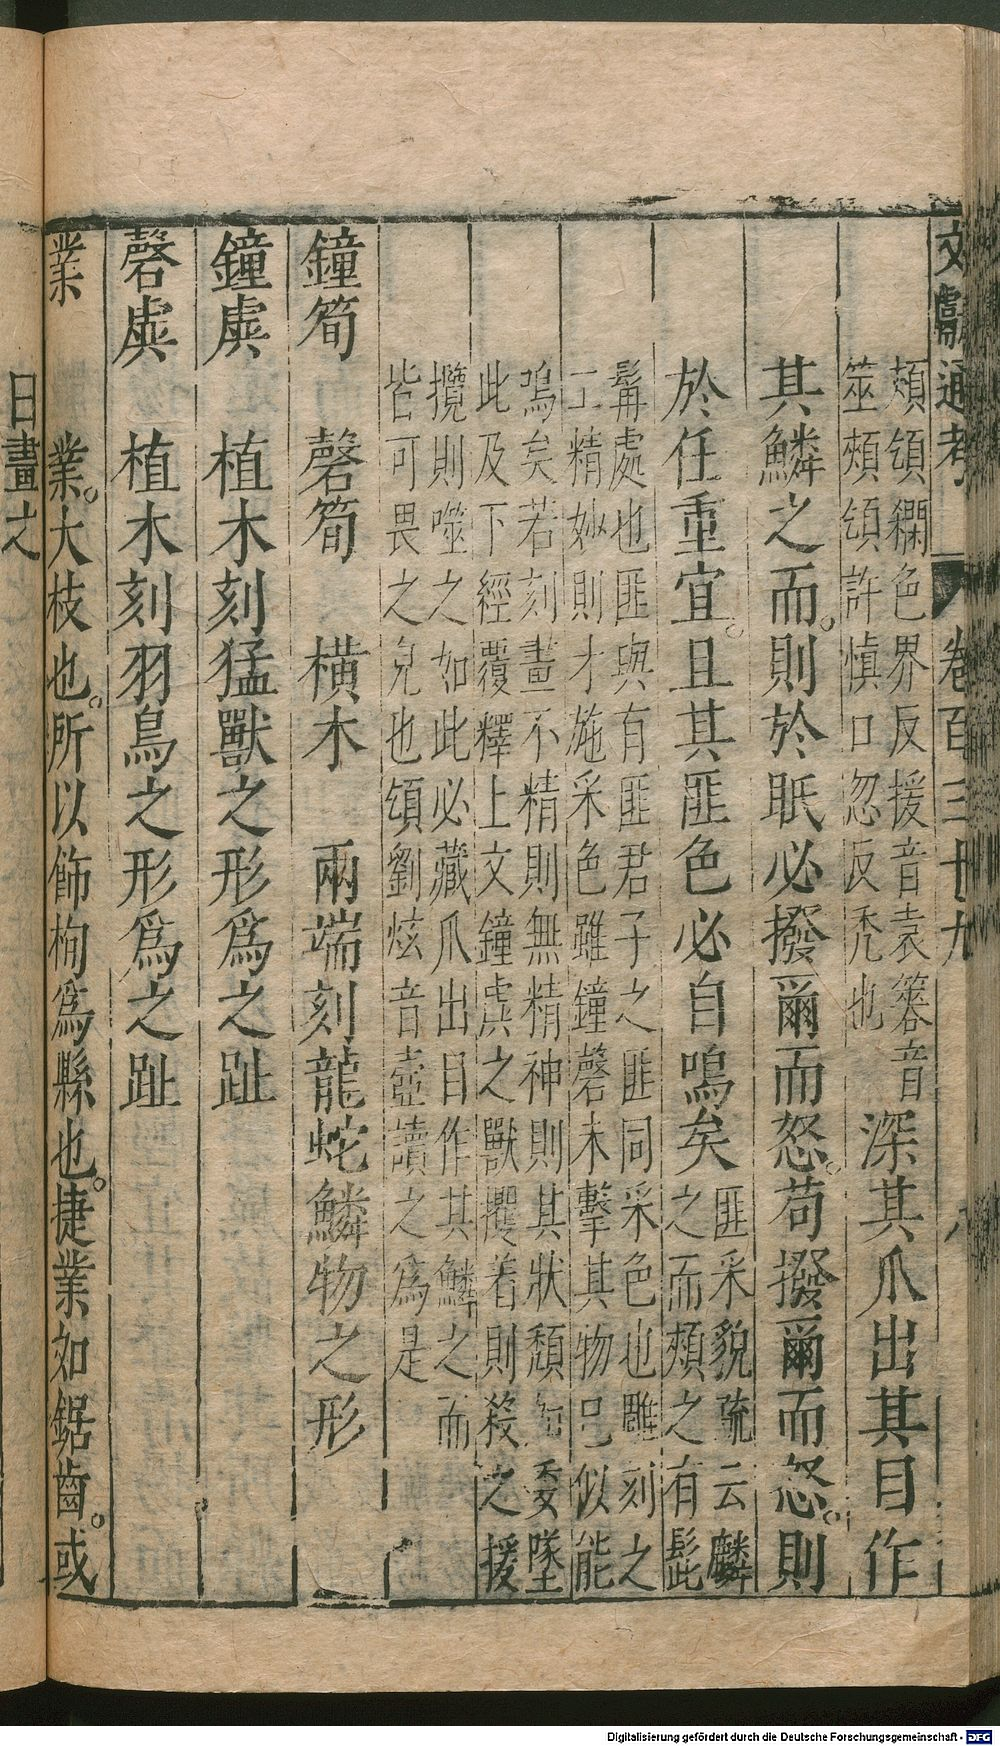 文獻通考 卷百三十九 八
頰頎䌦色界反援音袁簭音
筮頰頎許慎口忽反禿也
深其爪出其目作
其鱗之而則於眡必撥爾而怒苟撥爾而怒則
於任重宜且其匪色必自鳴矣
匪采貌疏云麟
之而頰之有髭
髯處也匪與有匪君子之匪同采色也雕刻之
工精妙則才施采色雖鐘磬未擊其物已似能
鳴矣若刻畫不精則無精神則其狀頹 委墜
此及下經覆釋上文鐘虡之獸攫着則殺之援
攬則噬之如此必藏爪出目作其鱗之而
皆可畏之皃也頎劉炫音壺讀之為是
鐘筍 磬筍 橫木 兩端刻龍蛇鱗物之形
鐘虡 植木刻猛獸之形為之趾
磬虡 植木刻羽鳥之形為之趾
業 業大枝也所以飾栒為縣也捷業如鋸齒或
日畫之
Digitalisierung gefördert durch die Deutsche Forschungsgemeinschaft - DFG